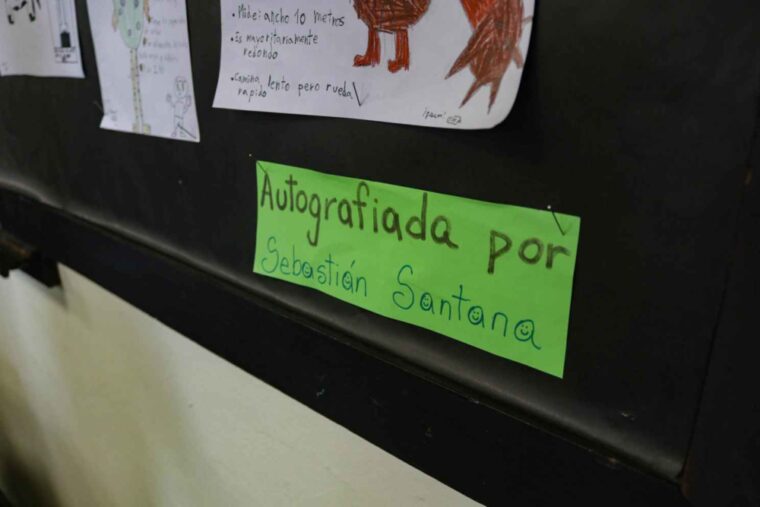 • Mide: ancho 10 metros
• Es mayoritariamente
redondo
• Camina lento pero rueda
rapido
Autografiada por
Sebastián Santana